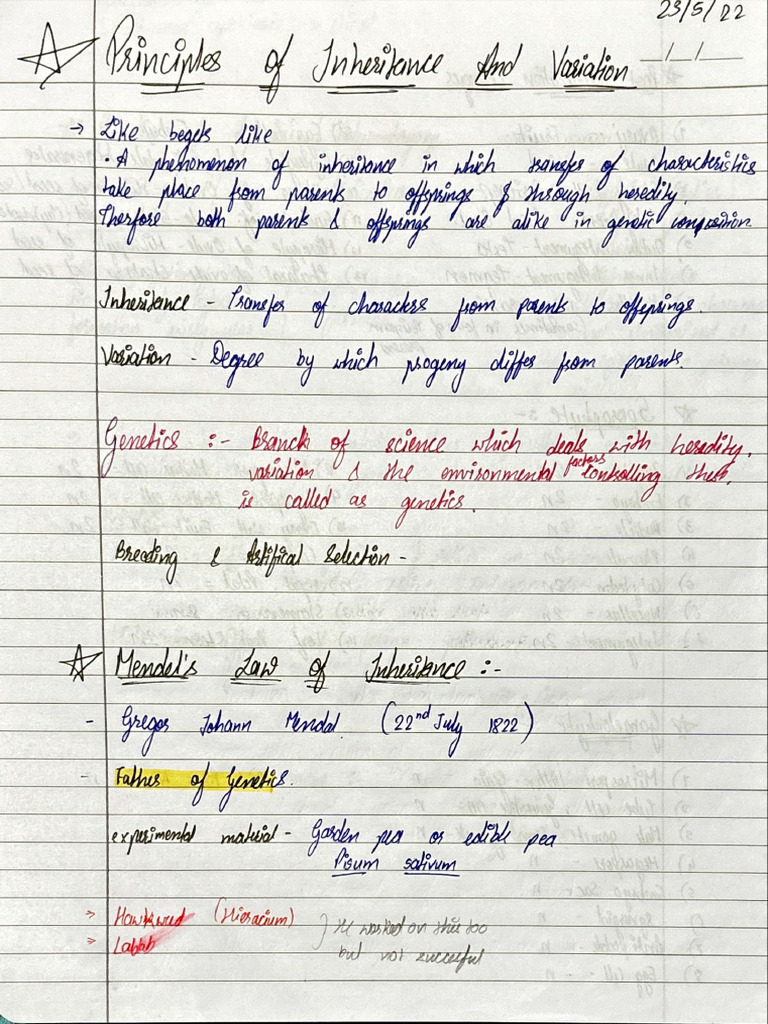 23/5/22
Principles of Inheritance And Variation
→ Like begets like
• A phenomenon of inheritance in which transfer of characteristics
take place from parents to offsprings & through heredity.
Therefore both parents & offsprings are alike in genetic composition.
Inheritance - Transfer of characters from parents to offsprings.
Variation - Degree by which progeny differs from parents.
Genetics :- Branch of science which deals with heredity,
variation & the environmental factors controlling these,
is called as genetics.
Breeding & Artifical Selection -
Mendel's Law of Inheritance :-
- Gregor Johann Mendal. (22nd July 1822)
- Father of Genetics.
experimental material - Garden pea or edible pea
Pisum sativum
> Hawkwed (Hieracium)
> Lablab
} He worked on this too
but not succesful